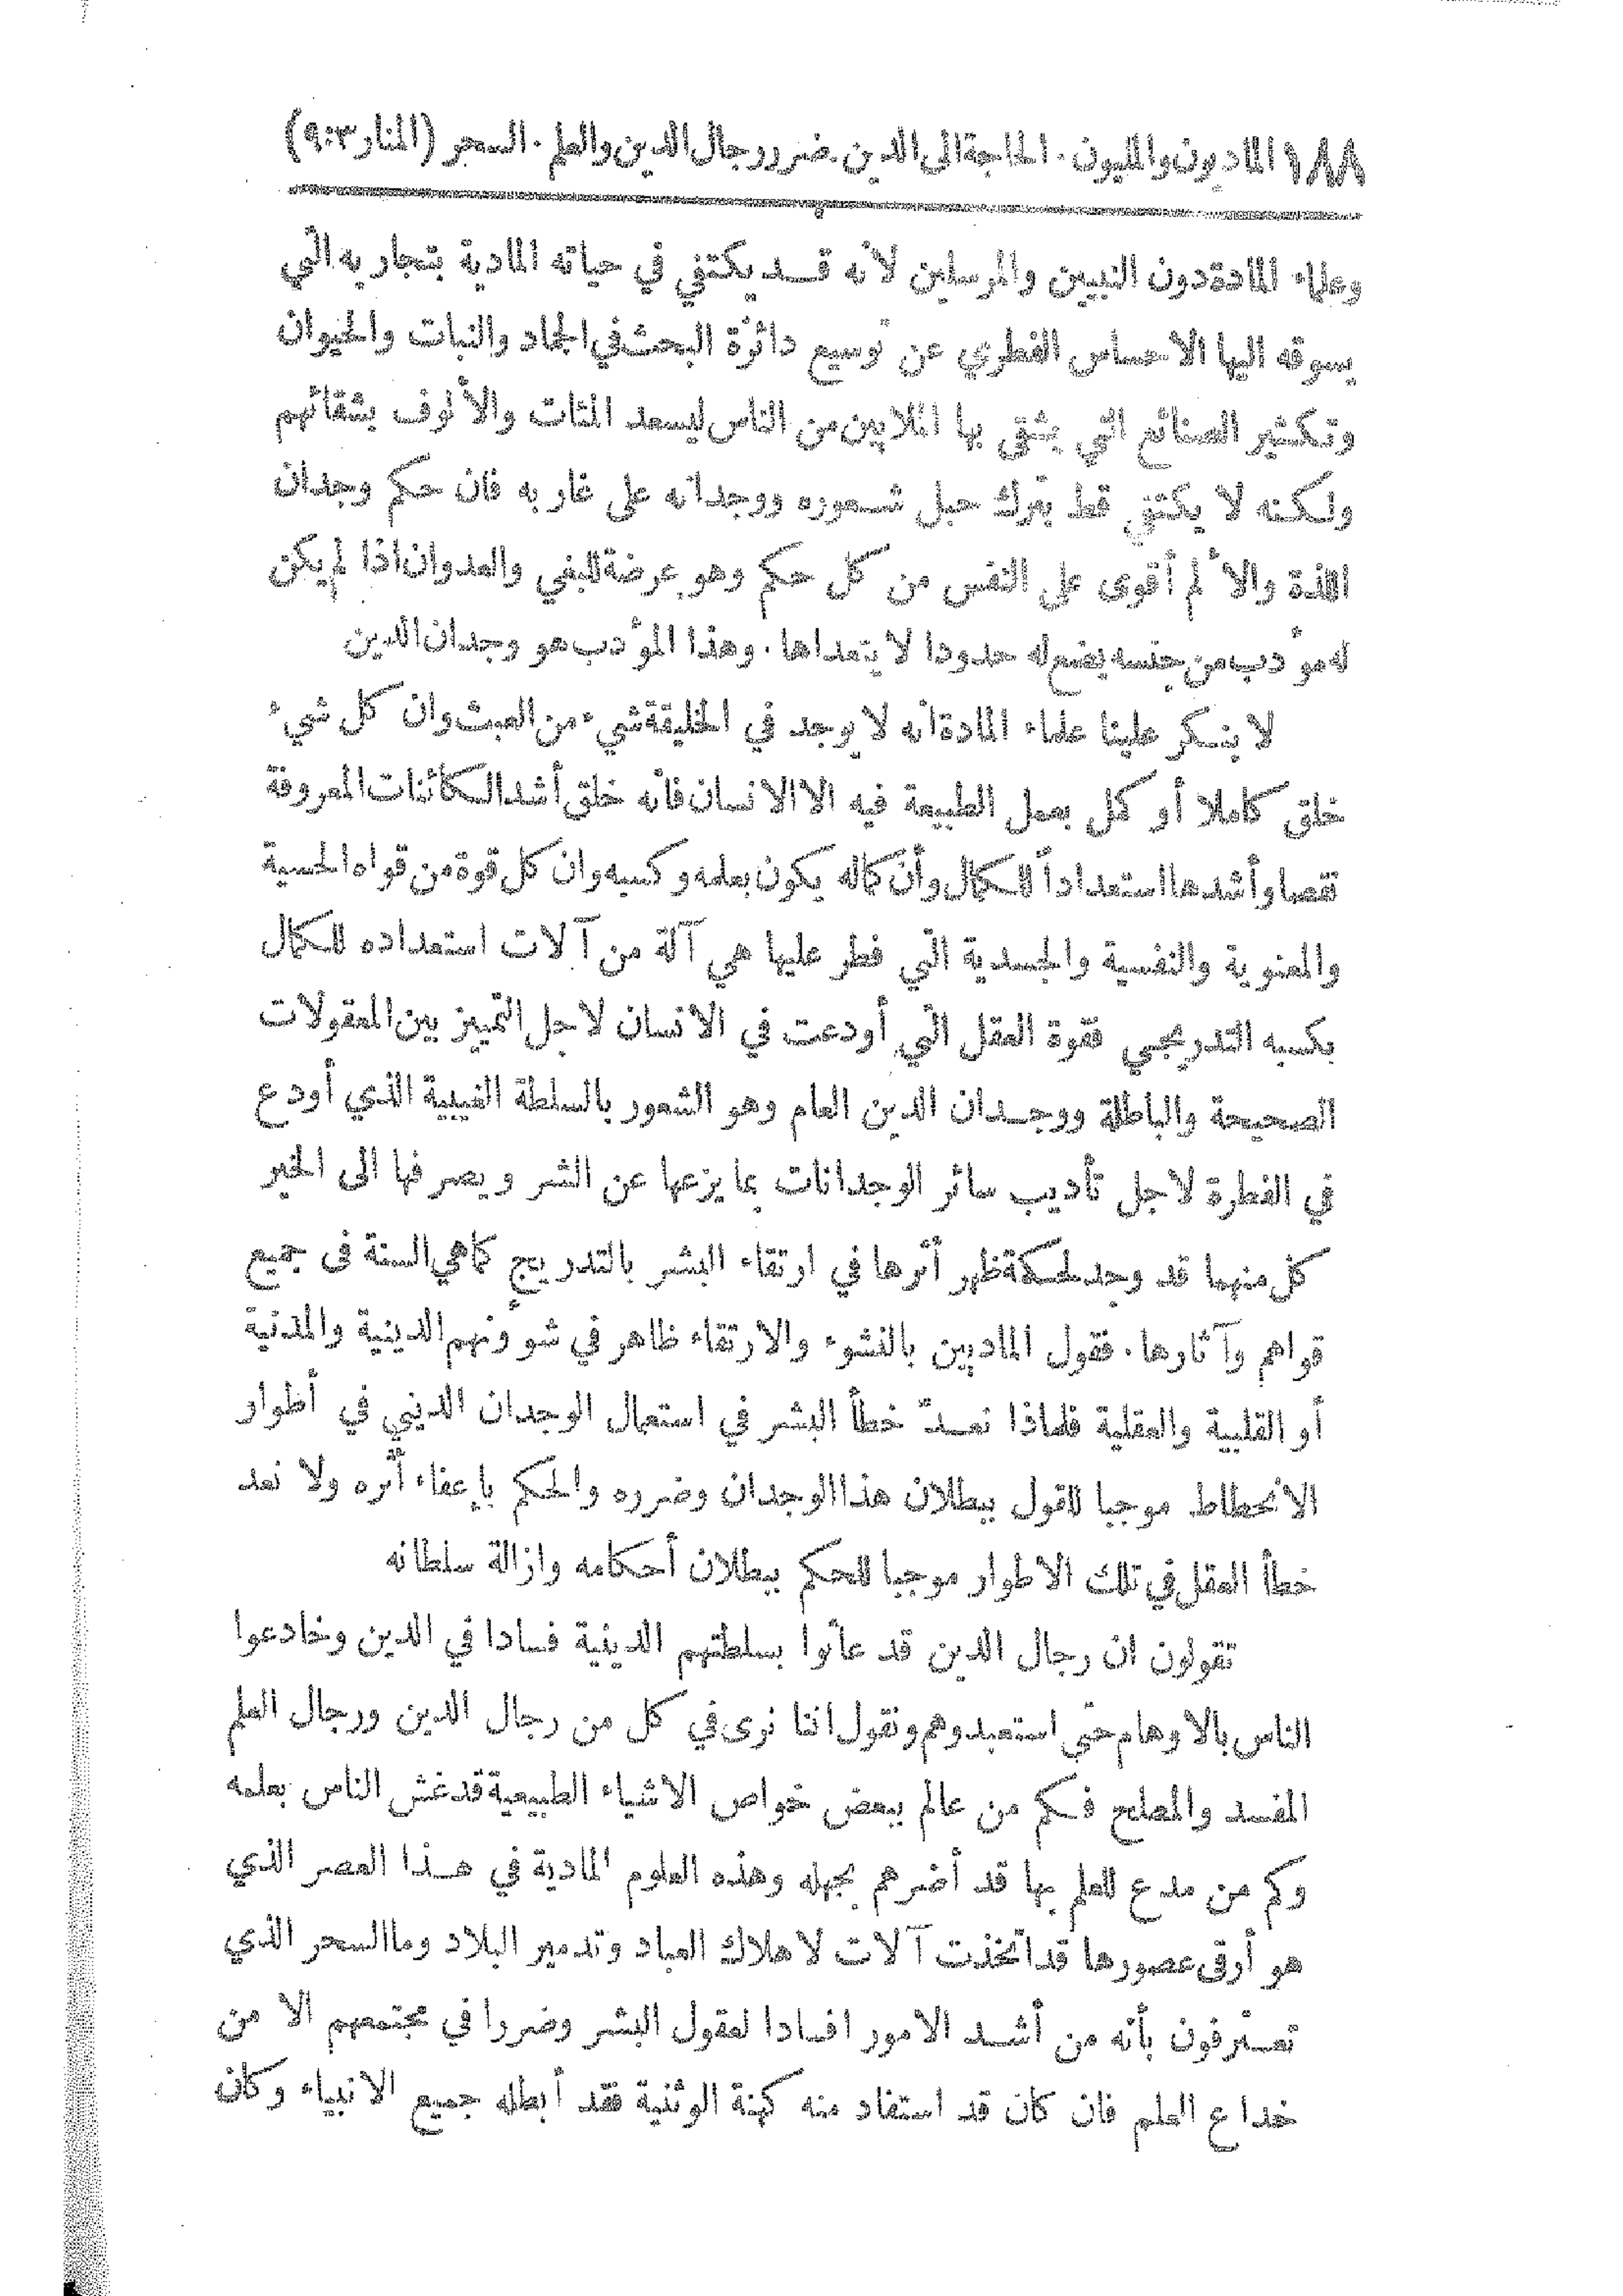 ١٨٨ الماديون والمليون . الحاجة الى الدين . ضرر رجال الدين والعلم . السحر (المنار ٣:٩)
وعلماء المادة دون النبيين والمرسلين لأنه قد يكتفي في حياته المادية بتجاربه التي
يسوقه اليها الاحساس الفطري عن توسيع دائرة البحث في الجماد والنبات والحيوان
وتكثير الصنائع التي يشقى بها الملايين من الناس ليسعد المئات والألوف بشقائهم
ولكنه لا يكتفي قط بترك حبل شعوره ووجدانه على غاربه فان حكم وجدان
اللذة والألم أقوى على النفس من كل حكم وهو عرضة للبغي والعدوان اذا لم يكن
له مؤدب من جنسه يضع له حدودا لا يتعداها . وهذا المؤدب هو وجدان الدين
لا ينكر علينا علماء المادة انه لا يوجد في الخليقة شيء من العبث وان كل شيء
خلق كاملا أو كمل بعمل الطبيعة فيه الا الانسان فانه خلق أشد الكائنات المعروفة
نقصا وأشدها استعداداً للكمال وأن كماله يكون بعلمه وكسبه وان كل قوة من قواه الحسية
والمعنوية والنفسية والجسدية التي فطر عليها هي آلة من آلات استعداده للكمال
بكسبه التدريجي فقوة العقل التي أودعت في الانسان لاجل التمييز بين المعقولات
الصحيحة والباطلة ووجدان الدين العام وهو الشعور بالسلطة الغيبية الذي أودع
في الفطرة لاجل تأديب سائر الوجدانات بما يزعها عن الشر ويصرفها الى الخير
كل منهما قد وجد لحكمة ظهر أثرها في ارتقاء البشر بالتدريج كما هي السنة فى جميع
قواهم وآثارها . فقول الماديين بالنشوء والارتقاء ظاهر في شؤونهم الدينية والمدنية
أو القلبية والعقلية فلماذا نعدّ خطأ البشر في استعمال الوجدان الديني في أطوار
الانحطاط موجبا للقول ببطلان هذا الوجدان وضرره والحكم بإعفاء أثره ولا نعد
خطأ العقل في تلك الاطوار موجبا للحكم ببطلان أحكامه وازالة سلطانه
تقولون ان رجال الدين قد عاثوا بسلطتهم الدينية فسادا في الدين وخادعوا
الناس بالاوهام حتى استعبدوهم ونقول اننا نرى في كل من رجال الدين ورجال العلم
المفسد والمصلح فكم من عالم ببعض خواص الاشياء الطبيعية قد غش الناس بعلمه
وكم من مدع للعلم بها قد أضرهم بجهله وهذه العلوم المادية في هذا العصر الذي
هو أرقى عصورها قد اتخذت آلات لاهلاك العباد وتدمير البلاد وما السحر الذي
تعترفون بأنه من أشد الامور افسادا لعقول البشر وضررا في مجتمعهم الا من
خداع العلم فان كان قد استفاد منه كهنة الوثنية فقد أبطله جميع الانبياء وكان